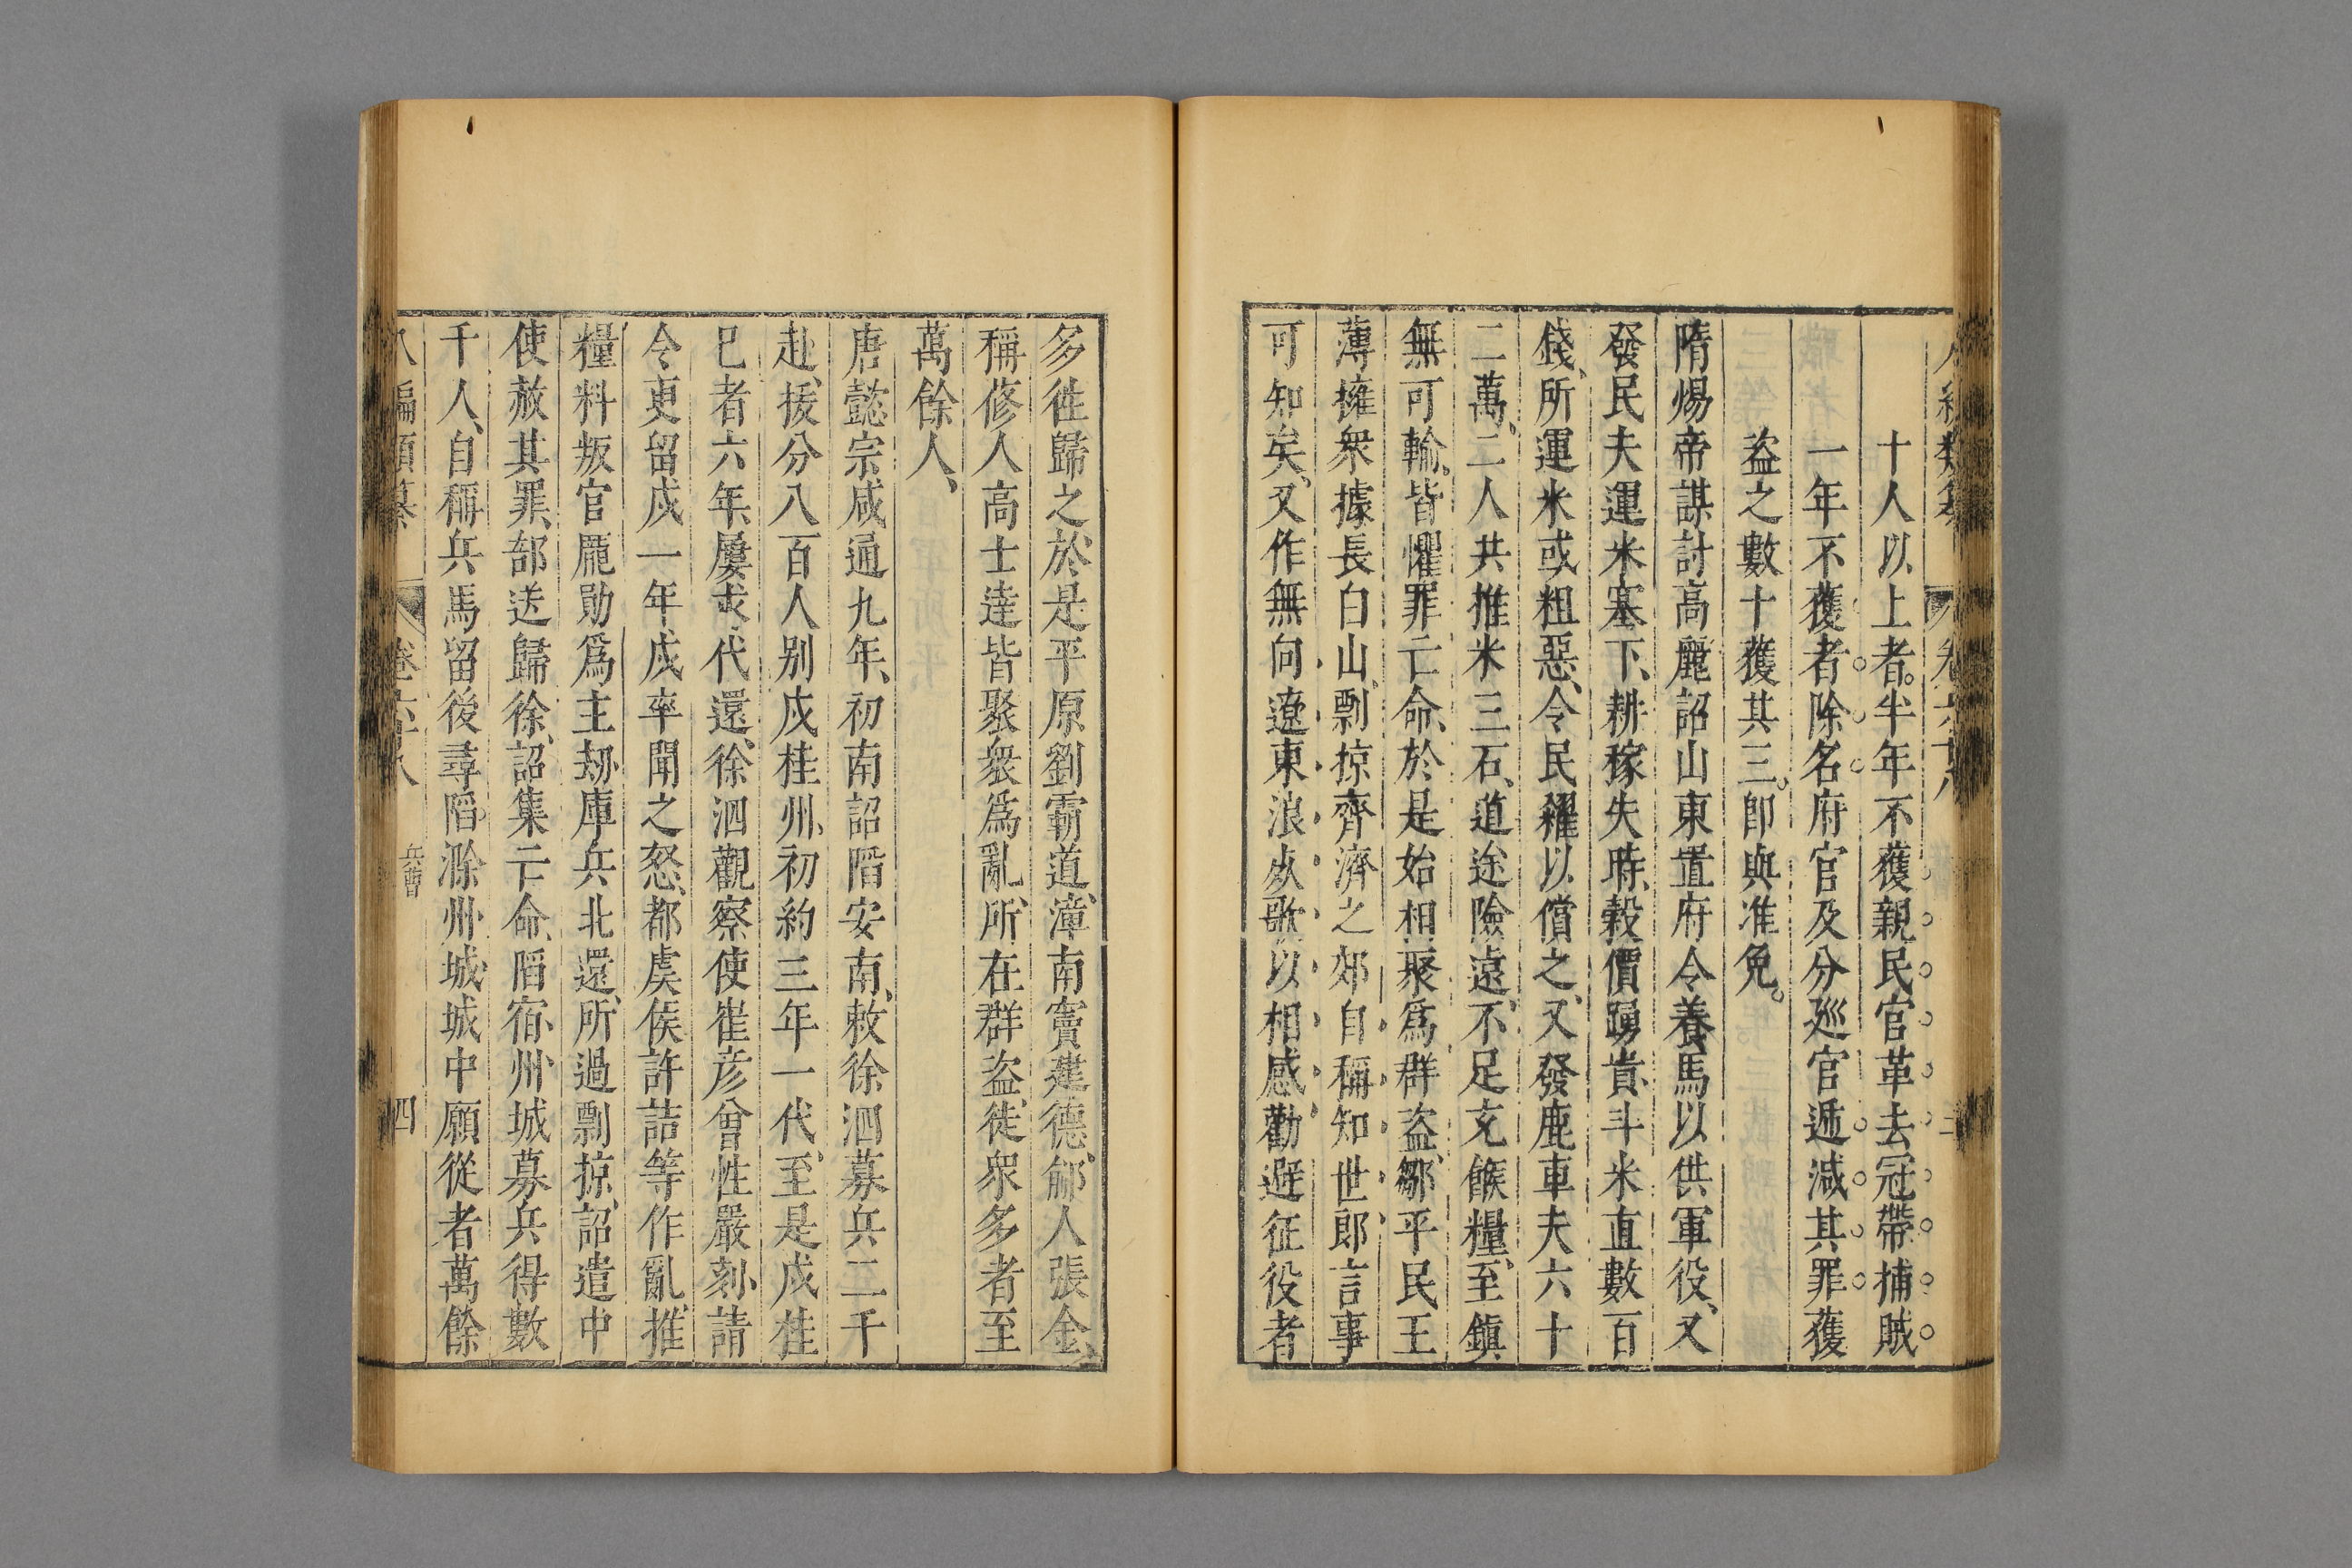 十人以上者。半年不獲親民官革去冠帶捕賊
一年不獲者除名府官及分廵官逓減其罪獲
盗之數十獲其三。卽與准免。
隋煬帝謀討高麗詔山東置府令養馬以供軍役、又
發民夫運米塞下、耕稼失時、穀價踴貴、斗米直數百
錢、所運米或粗惡、令民糴以償之、又發鹿車夫六十
二萬。二人共推米三石、道途險遠、不足充餱糧、至鎮
無可輸。皆懼罪亡命、於是始相聚爲群盗、鄒平民王
薄擁衆據長白山、剽掠齊濟之郊自稱知世郎、言事
可知矣、又作無向遼東浪死歌以相感勸避征役者
多徃歸之、於是平原劉霸道、漳南竇建德、鄃人張金、
稱、修人高士達皆聚衆爲亂、所在群盗、徒衆多者至
萬餘人、
唐懿宗咸通九年、初南詔陷安南、敕徐泗募兵二千
赴、援分八百人别戍桂州、初約三年一代、至是戍桂
巳者六年、屢求代還、徐泗觀察使崔彦曾性嚴刻、請
令更留戍一年戍卒聞之怒、都虞候許詰等作亂、推
糧料叛官龎勛爲主刼庫兵北還、所過剽掠、詔遣中
使赦其罪、部送歸徐、詔集亡命、陷宿州、城募兵得數
千人、自稱兵馬留後尋陷滁州、城、城中願從者萬餘
八編類纂 卷六十八 兵曹 四